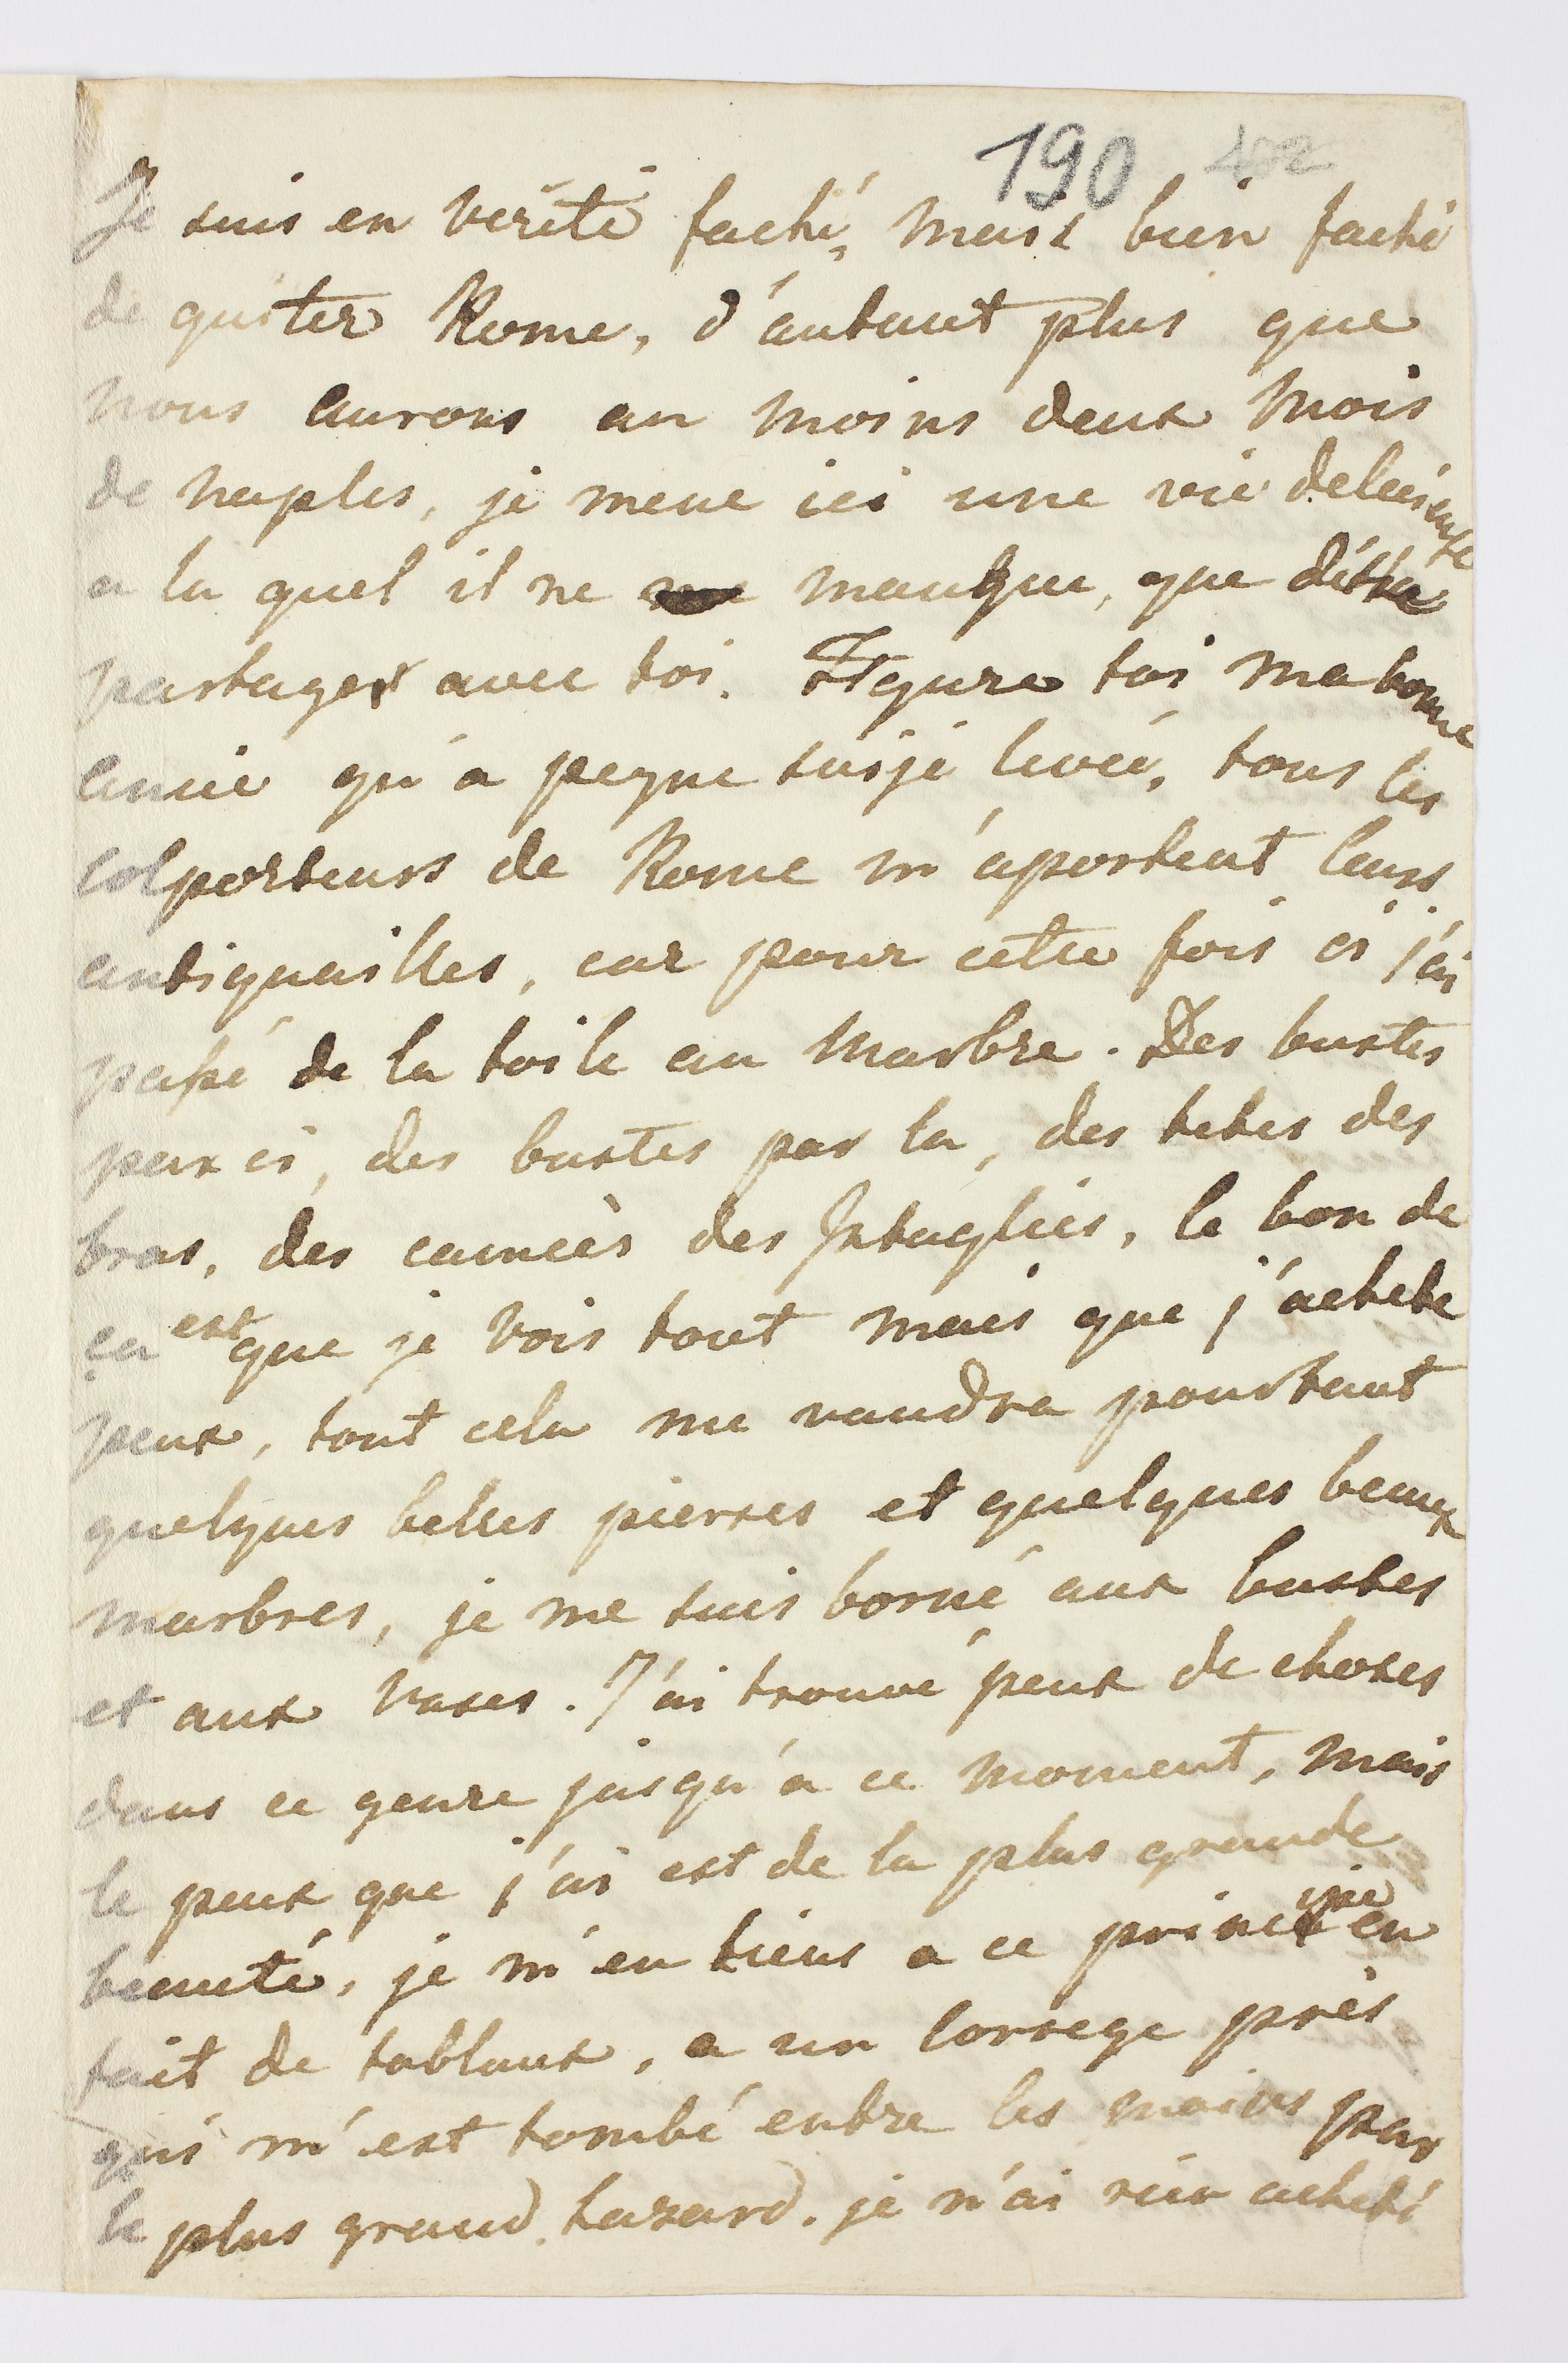 190 402
Je suis en verité faché, mais bien faché
de quiter Rome, d'autant plus que
nous aurons au moins deux mois
de naples, je mene ici une vie delicieuse
a la quel il ne manque, que d'être
partager avec toi. Figure toi ma bonne
amie qu'a peyne suisje levée, tous les
colporteurs de Rome m'aportent leurs
antiquailles, car pour cette fois ci j'ai
passé de la toile au marbre. Des bustes
par ci, des bustes par la, des tetes des
bras, des cameès des Intaglies, le bon de
ça est que je vois tout mais que j'achete
peux, tout cela me vaudra pourtant
quelques belles pierres et quelques beaux
marbres, je me suis borné aux bustes
et aux vases. J'ai trouvé peux de choses
dans ce genre jusqu'a ce moment, mais
le peux que j'ai est de la plus grande
beauté, je m'en tiens a ce principe en
fait de tablaux, a un Correge près
qui m'est tombé entre les mains par
le plus grand hazard. je n'ai rien acheté